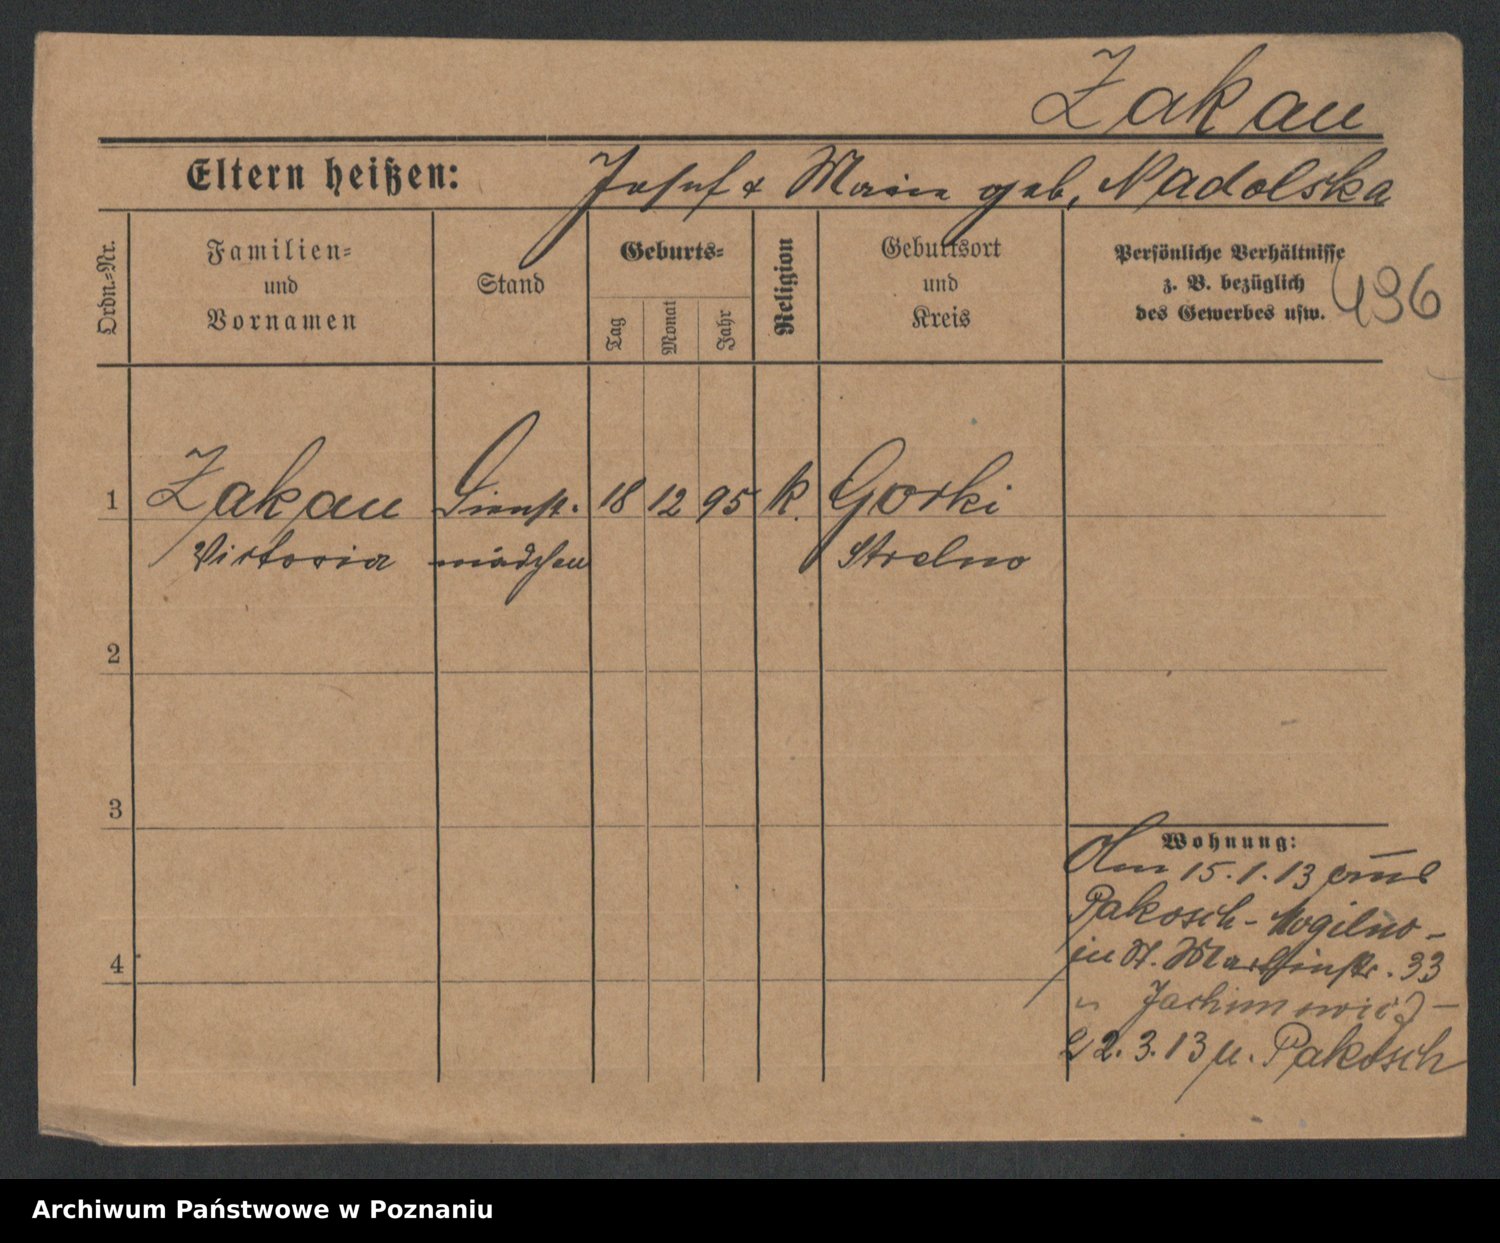 Zakau
Eltern heißen: Josef & Marie geb. Nadolska
Ordn.-Nr.
Familien-
und
Vornamen
Stand
Geburts-
Tag
Monat
Jahr
Religion
Geburtsort
und
Kreis
Persönliche Verhältnisse
z. B. bezüglich
des Gewerbes usw.
436
1 Zakau Dienst- 18 12 95 k. Gorki
Victoria mädchen Strelno
2
3
4
Wohnung:
Am 15.1.13 von
Pakosch-Mogilno-
in St. Martinstr. 33
" Jachimowicz-
22.3.13 n. Pakosch
Archiwum Państwowe w Poznaniu